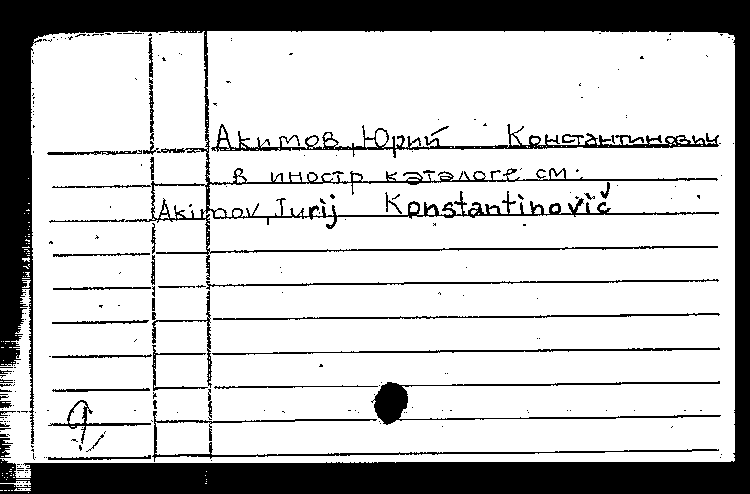 Акимов, Юрий Константинович
в иностр каталоге см.
Akimov, Jurij Konstantinovič